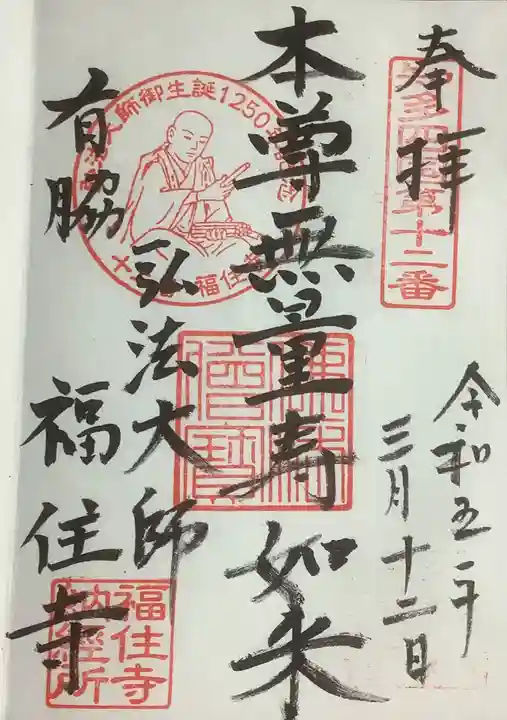 奉拝
知多四国第十二番
令和五年
三月十二日
本尊無量寿如来
弘法大師
大師御生誕1250年記念
福住寺
有脇
福住寺
福住寺
納経所